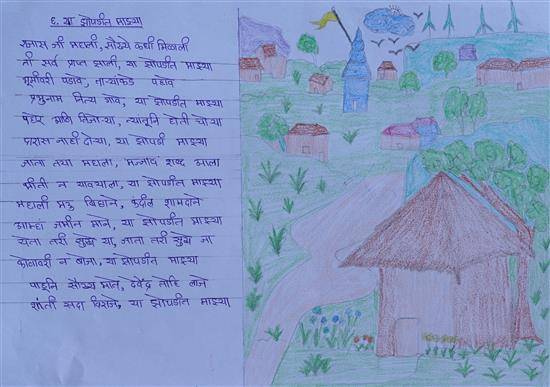 ६. या झोपडीत माझ्या
राजास जी महाली, सौख्ये कधी मिळाली
ती सर्व प्राप्त झाली, या झोपडीत माझ्या
भूमीवरी पडावे, ताऱ्यांकडे पहावे
प्रभुनाम नित्य गावे, या झोपडीत माझ्या
पहारे आणि तिजोऱ्या, त्यातूनि होती चोऱ्या
दारास नाही दोऱ्या, या झोपडी माझ्या
जाता तया महाला, मज्जाव शब्द आला
भीती न यावयाला, या झोपडीत माझ्या
महाली मऊ बिछाने, कंदील शामदाने
आम्हा जमीन माने, या झोपडीत माझ्या
येता तरी सुखे या, जाता तरी सुखे जा
कोणावरी न बोजा, या झोपडीत माझ्या
पाहूनि सौख्य माते, देवेंद्र तोहि लाजे
शांती सदा विराजे, या झोपडीत माझ्या